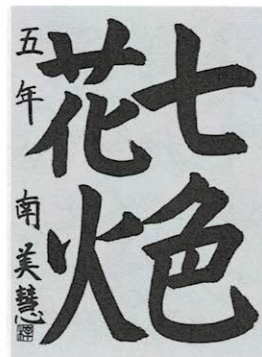 七色
花火
五年 南美慧